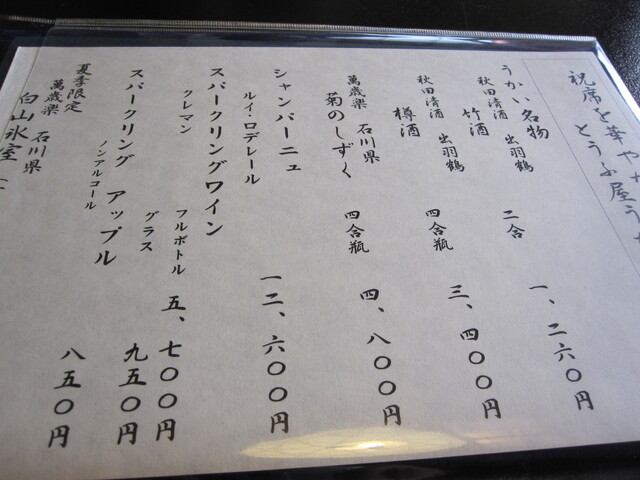 祝席を華や
とうふ屋う
うかい名物
秋田清酒 出羽鶴
竹酒 二合 一、二六〇円
秋田清酒 出羽鶴
樽酒 四合瓶 三、四〇〇円
萬歳楽 石川県
菊のしずく 四合瓶 四、八〇〇円
シャンパーニュ
ルイ・ロデレール 一二、六〇〇円
スパークリングワイン
クレマン フルボトル 五、七〇〇円
グラス 九五〇円
スパークリング アップル
ノンアルコール 八五〇円
夏季限定
萬歳楽 石川県
白山氷室